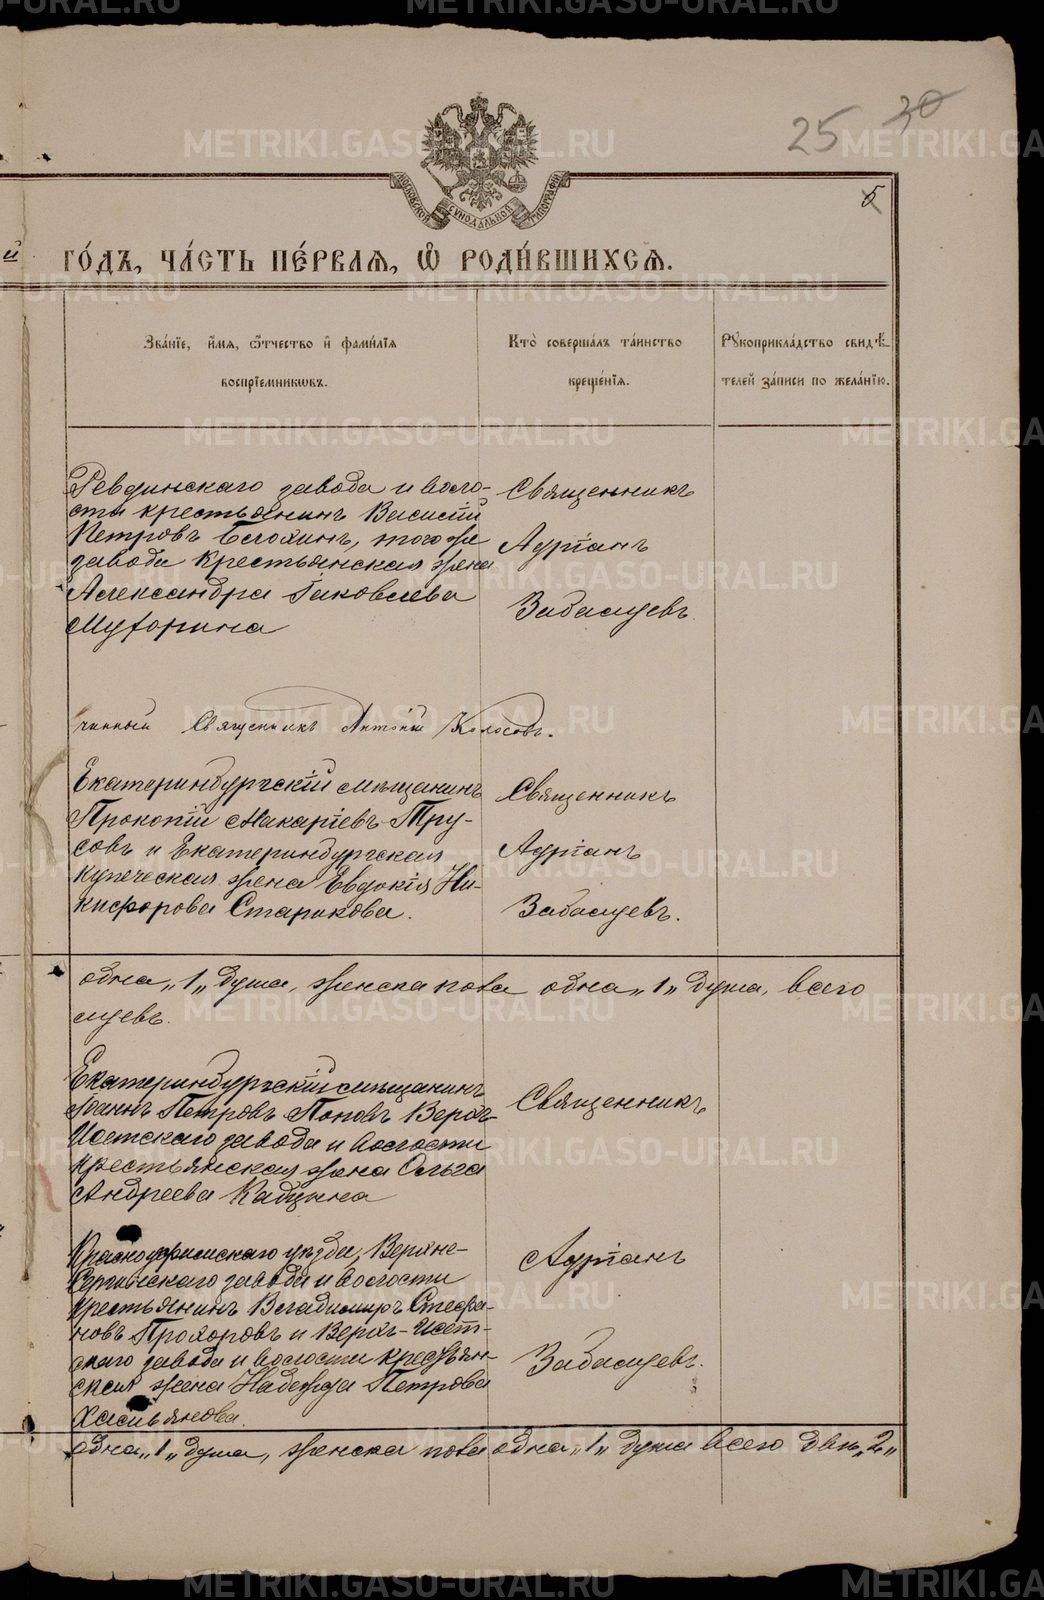 METRIKI.GASO-URAL.RU
25 30
МОСКОВСКОЙ СѴНОДАЛЬНОЙ ТИПОГРАФІИ
5
й го́дъ, ча́сть пе́рваѧ, ѡ҆ роди́вшихсѧ.
Зва́нїе, и҆́мѧ, ѻ҆́тчество и҆ фами́лїѧ
воспрїе́мникѡвъ.
Кто̀ соверша́лъ та́инство
креще́нїѧ.
Рꙋкоприкла́дство свидѣ́-
телей за́писи по жела́нїю.
Ревдинскаго завода и воло-
сти крестьянинъ Василій
Петровъ Белохинъ, того же
завода крестьянская жена
Александра Іаковлева
Мухорина
Священникъ
Адріанъ
Забалуевъ
чинный Священникъ Антоній Колосовъ.
Екатеринбургскій мѣщанинъ
Прокопій Макаріевъ Тру-
совъ и Екатеринбургская
купеческая жена Евдокія Ни-
кифорова Старикова.
Священникъ
Адріанъ
Забалуевъ.
одна „1„ душа, женска пола одна „1„ душа, всего
луевъ.
Екатеринбургскій мѣщанинъ
Іоаннъ Петровъ Поповъ Верхъ-
Исетскаго завода и волости
крестьянская жена Ольга
Андреева Кадцына
Священникъ
Красноуфимскаго уѣзда, Верхне-
Сергинскаго завода и волости
крестьянинъ Владимиръ Стефа-
новъ Прохоровъ и Верхъ-Исет-
скаго завода и волости крестьян-
ская жена Надежда Петрова
Касьянова.
Адріанъ
Забалуевъ.
одна „1„ душа, женска пола одна „1„ душа всего двѣ „2„